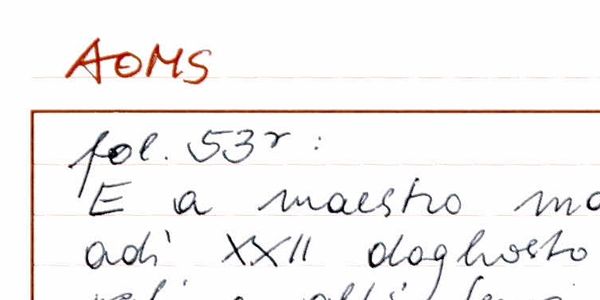 AOMS
fol. 53r :
E a maestro
adì XXII doghosto